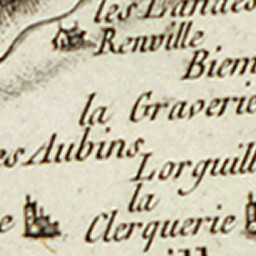 les Landes
Renville
Biem
la Graverie
es Aubins
Lorguill
la
Clerquerie
e